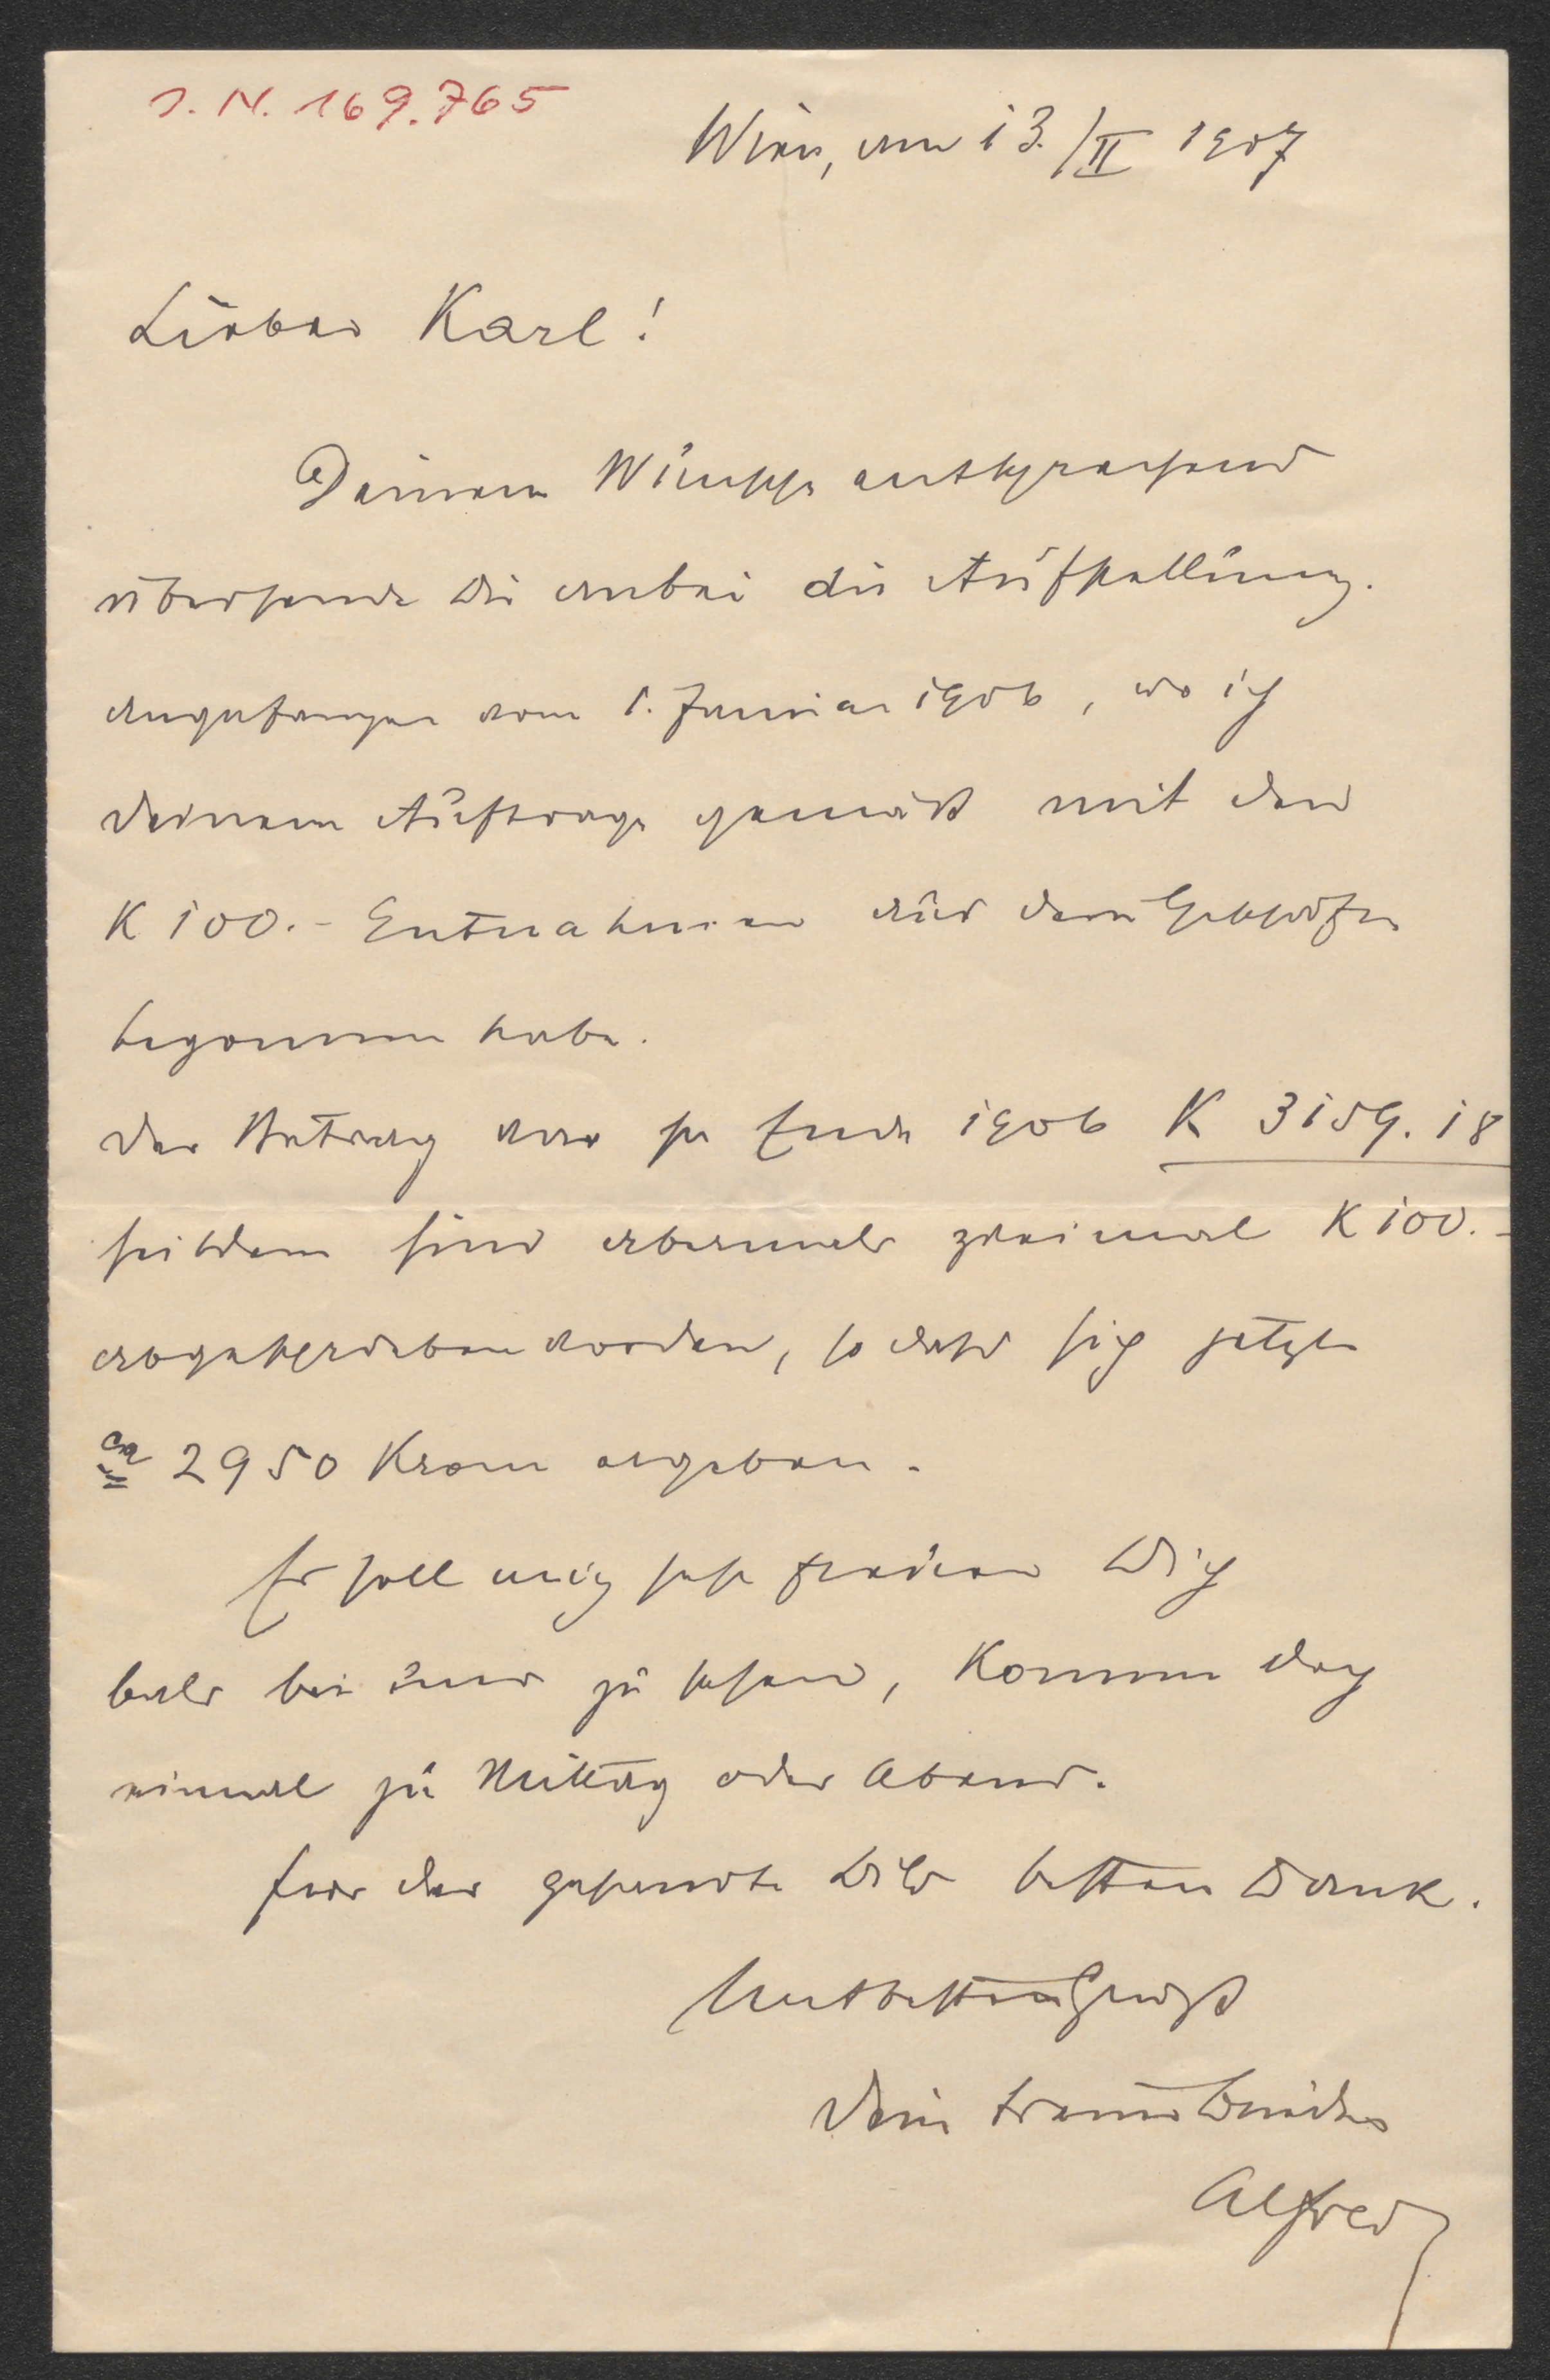 J. N. 169.765
Wien, am 13./II 1907
Lieber Karl!
Deinem Wunsche entsprechend
übersende Dir anbei die Aufstellung.
angefangen vom 1. Januar 1906, wo ich
Deinem Auftrage gemäß mit den
K 100.- Entnahmen aus dem
begonnen habe.
der Betrag war per Ende 1906 K 3159.18
seitdem sind abermals zweimal K 100.-
abgeschrieben worden, so dass sich jetzt
ca 2950 Kronen ergeben.
Es soll mich sehr freuen Dich
bald bei uns zu sehen, komme doch
einmal zu Mittag oder Abend.
für das gesandte Bild besten Dank.
Mit besten Gruß
Dein treuer Bruder
Alfred